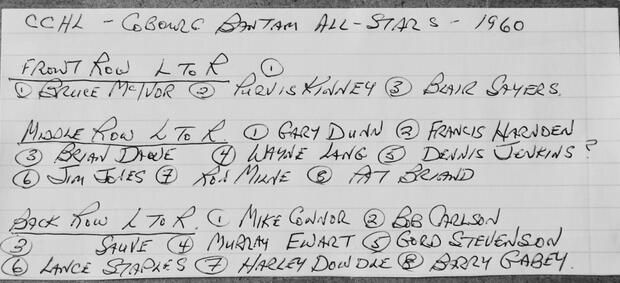 CCHL - COBOURG BANTAM ALL-STARS - 1960
FRONT ROW L TO R ①
① BRUCE McIVOR ② PURVIS KINNEY ③ BLAIR SAYERS.
MIDDLE ROW L TO R. ① GARY DUNN ② FRANCIS HARNDEN
③ BRIAN DAWE ④ WAYNE LANG ⑤ DENNIS JENKINS?
⑥ JIM JONES ⑦ RON MILNE ⑧ PAT BRIAND
BACK ROW L TO R. ① MIKE CONNOR ② BOB CARLSON
③ SAUVE ④ MURRAY EWART ⑤ GORD STEVENSON
⑥ LANCE STAPLES ⑦ HARLEY DOWDLE ⑧ BARRY GABEY.